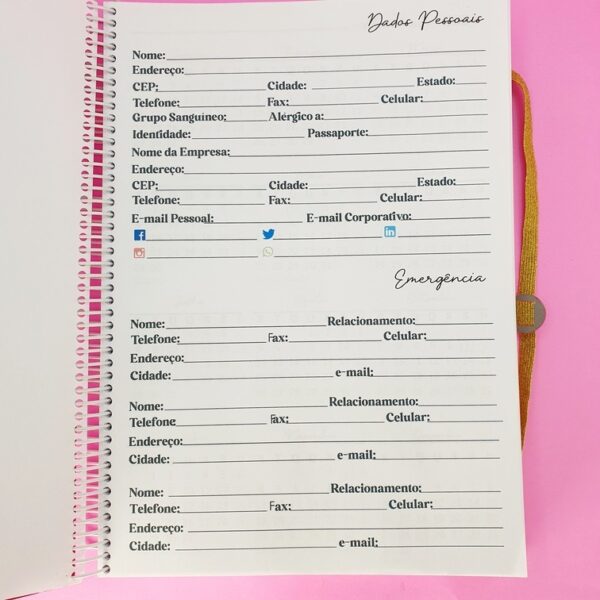 Dados Pessoais
Nome:
Endereço:
CEP: Cidade: Estado:
Telefone: Fax: Celular:
Grupo Sanguíneo: Alérgico a:
Identidade: Passaporte:
Nome da Empresa:
Endereço:
CEP: Cidade: Estado:
Telefone: Fax: Celular:
E-mail Pessoal: E-mail Corporativo:
Emergência
Nome: Relacionamento:
Telefone: Fax: Celular:
Endereço:
Cidade: e-mail:
Nome: Relacionamento:
Telefone Fax: Celular:
Endereço:
Cidade: e-mail:
Nome: Relacionamento:
Telefone: Fax: Celular:
Endereço:
Cidade: e-mail: